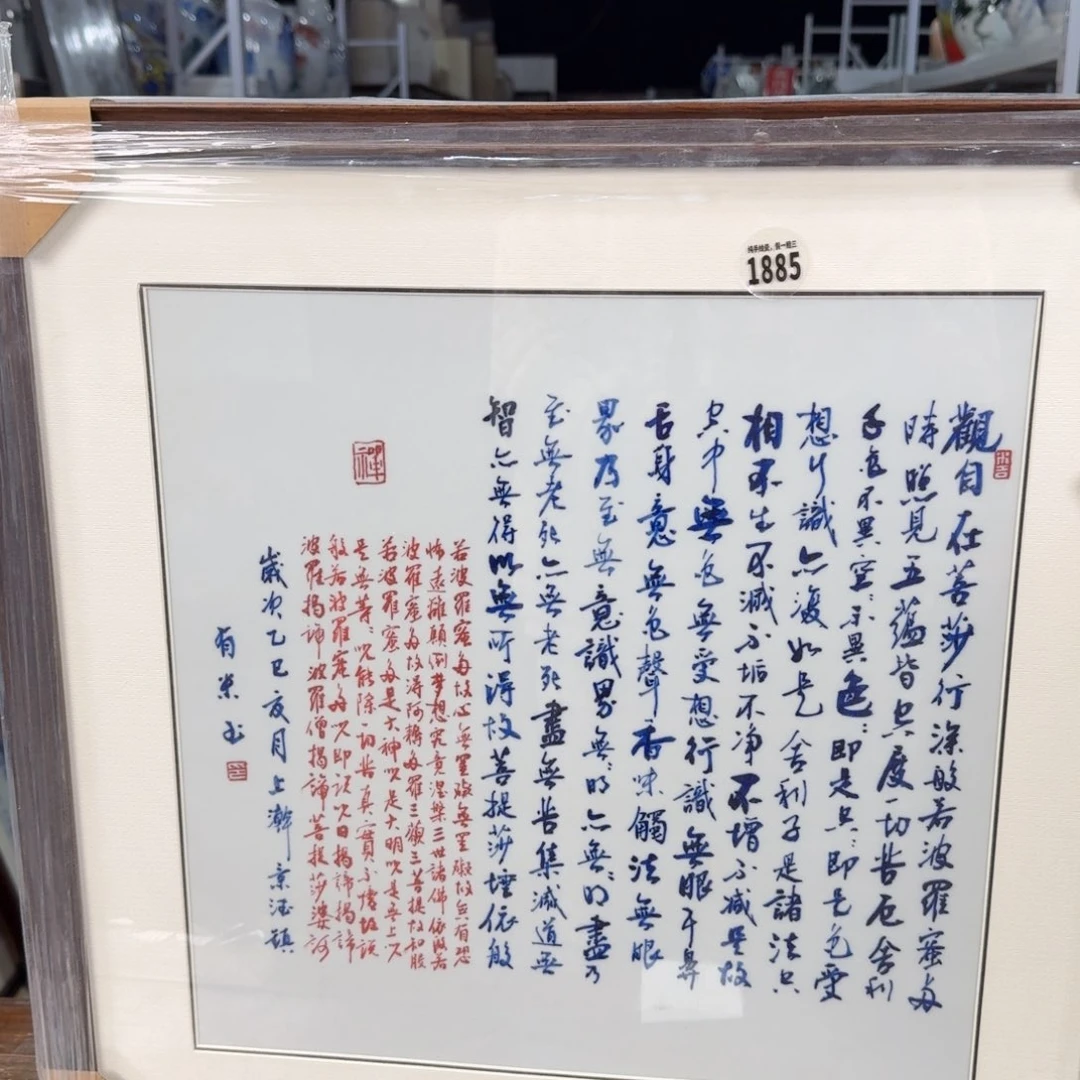 纯手绘瓷，假一赔三
1885
觀自在菩薩行深般若波羅蜜多
時照見五蘊皆空度一切苦厄舍利
子色不異空:不異色:即是空:即是色受
想行識亦復如是舍利子是諸法空
相不生不滅不垢不净不增不減是故
空中無色無受想行識無眼耳鼻
舌身意無色聲香味觸法無眼
界乃至無意識界無:明亦無:明盡乃
至無老死亦無老死盡無苦集滅道無
智亦無得以無所得故菩提薩埵依般
禪
若波羅蜜多故心無罣礙無罣礙故無有恐
怖遠離顛倒梦想究竟涅槃三世諸佛依般若
波羅蜜多故得阿耨多羅三藐三菩提故知般
若波羅蜜多是大神咒是大明咒是無上咒
是無等:咒能除一切苦真實不虛故說
般若波羅蜜多咒即說咒曰揭諦揭諦
波羅揭諦波羅僧揭諦菩提薩婆訶
歲次乙巳夏月上澣景德鎮
有米书